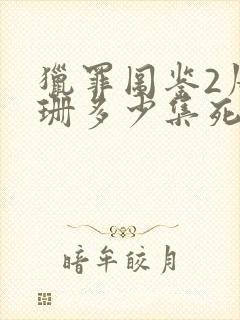 獵罪圖鉴2
珊多少集死
暗牟皎月